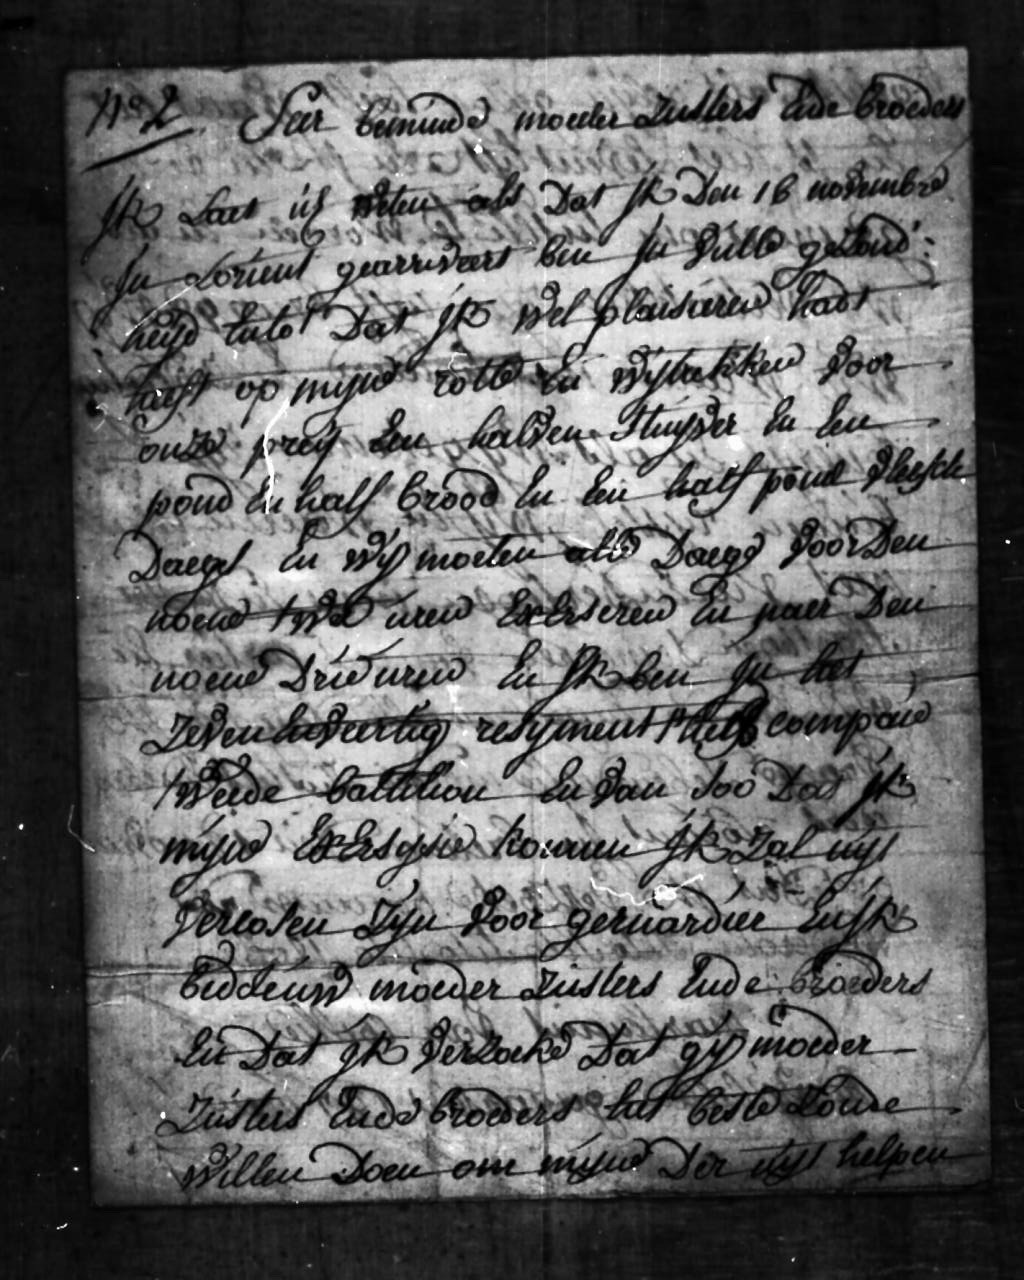 N° 2 Seer beminde moeder zusters ende broeders
jk Laet uÿ weten als Dat jk Den 16 novembre
jn Lorient gearriveert ben jn volle gesond:
heÿd
op mijne en wÿ trekken voor
onze preÿ een halven stuÿver en een
pond en half brood en een half pond vleesch
Daegs en wÿ moeten alle Daege voor Den
noene twee uren Exerseren en naer Den
noene Drie uren en jk ben jn het
zeven en veertig resyment compaie
tweede battilion en van soo Dat jk
mijne Exersysie konnen jk zal uÿt
verkosen zyn voor gernardier en jk
bidde uw moeder zusters ende broeders
en Dat jk verzoeke Dat gÿ moeder
zusters ende broeders het beste zoude
willen Doen om mijne Der uÿt helpen